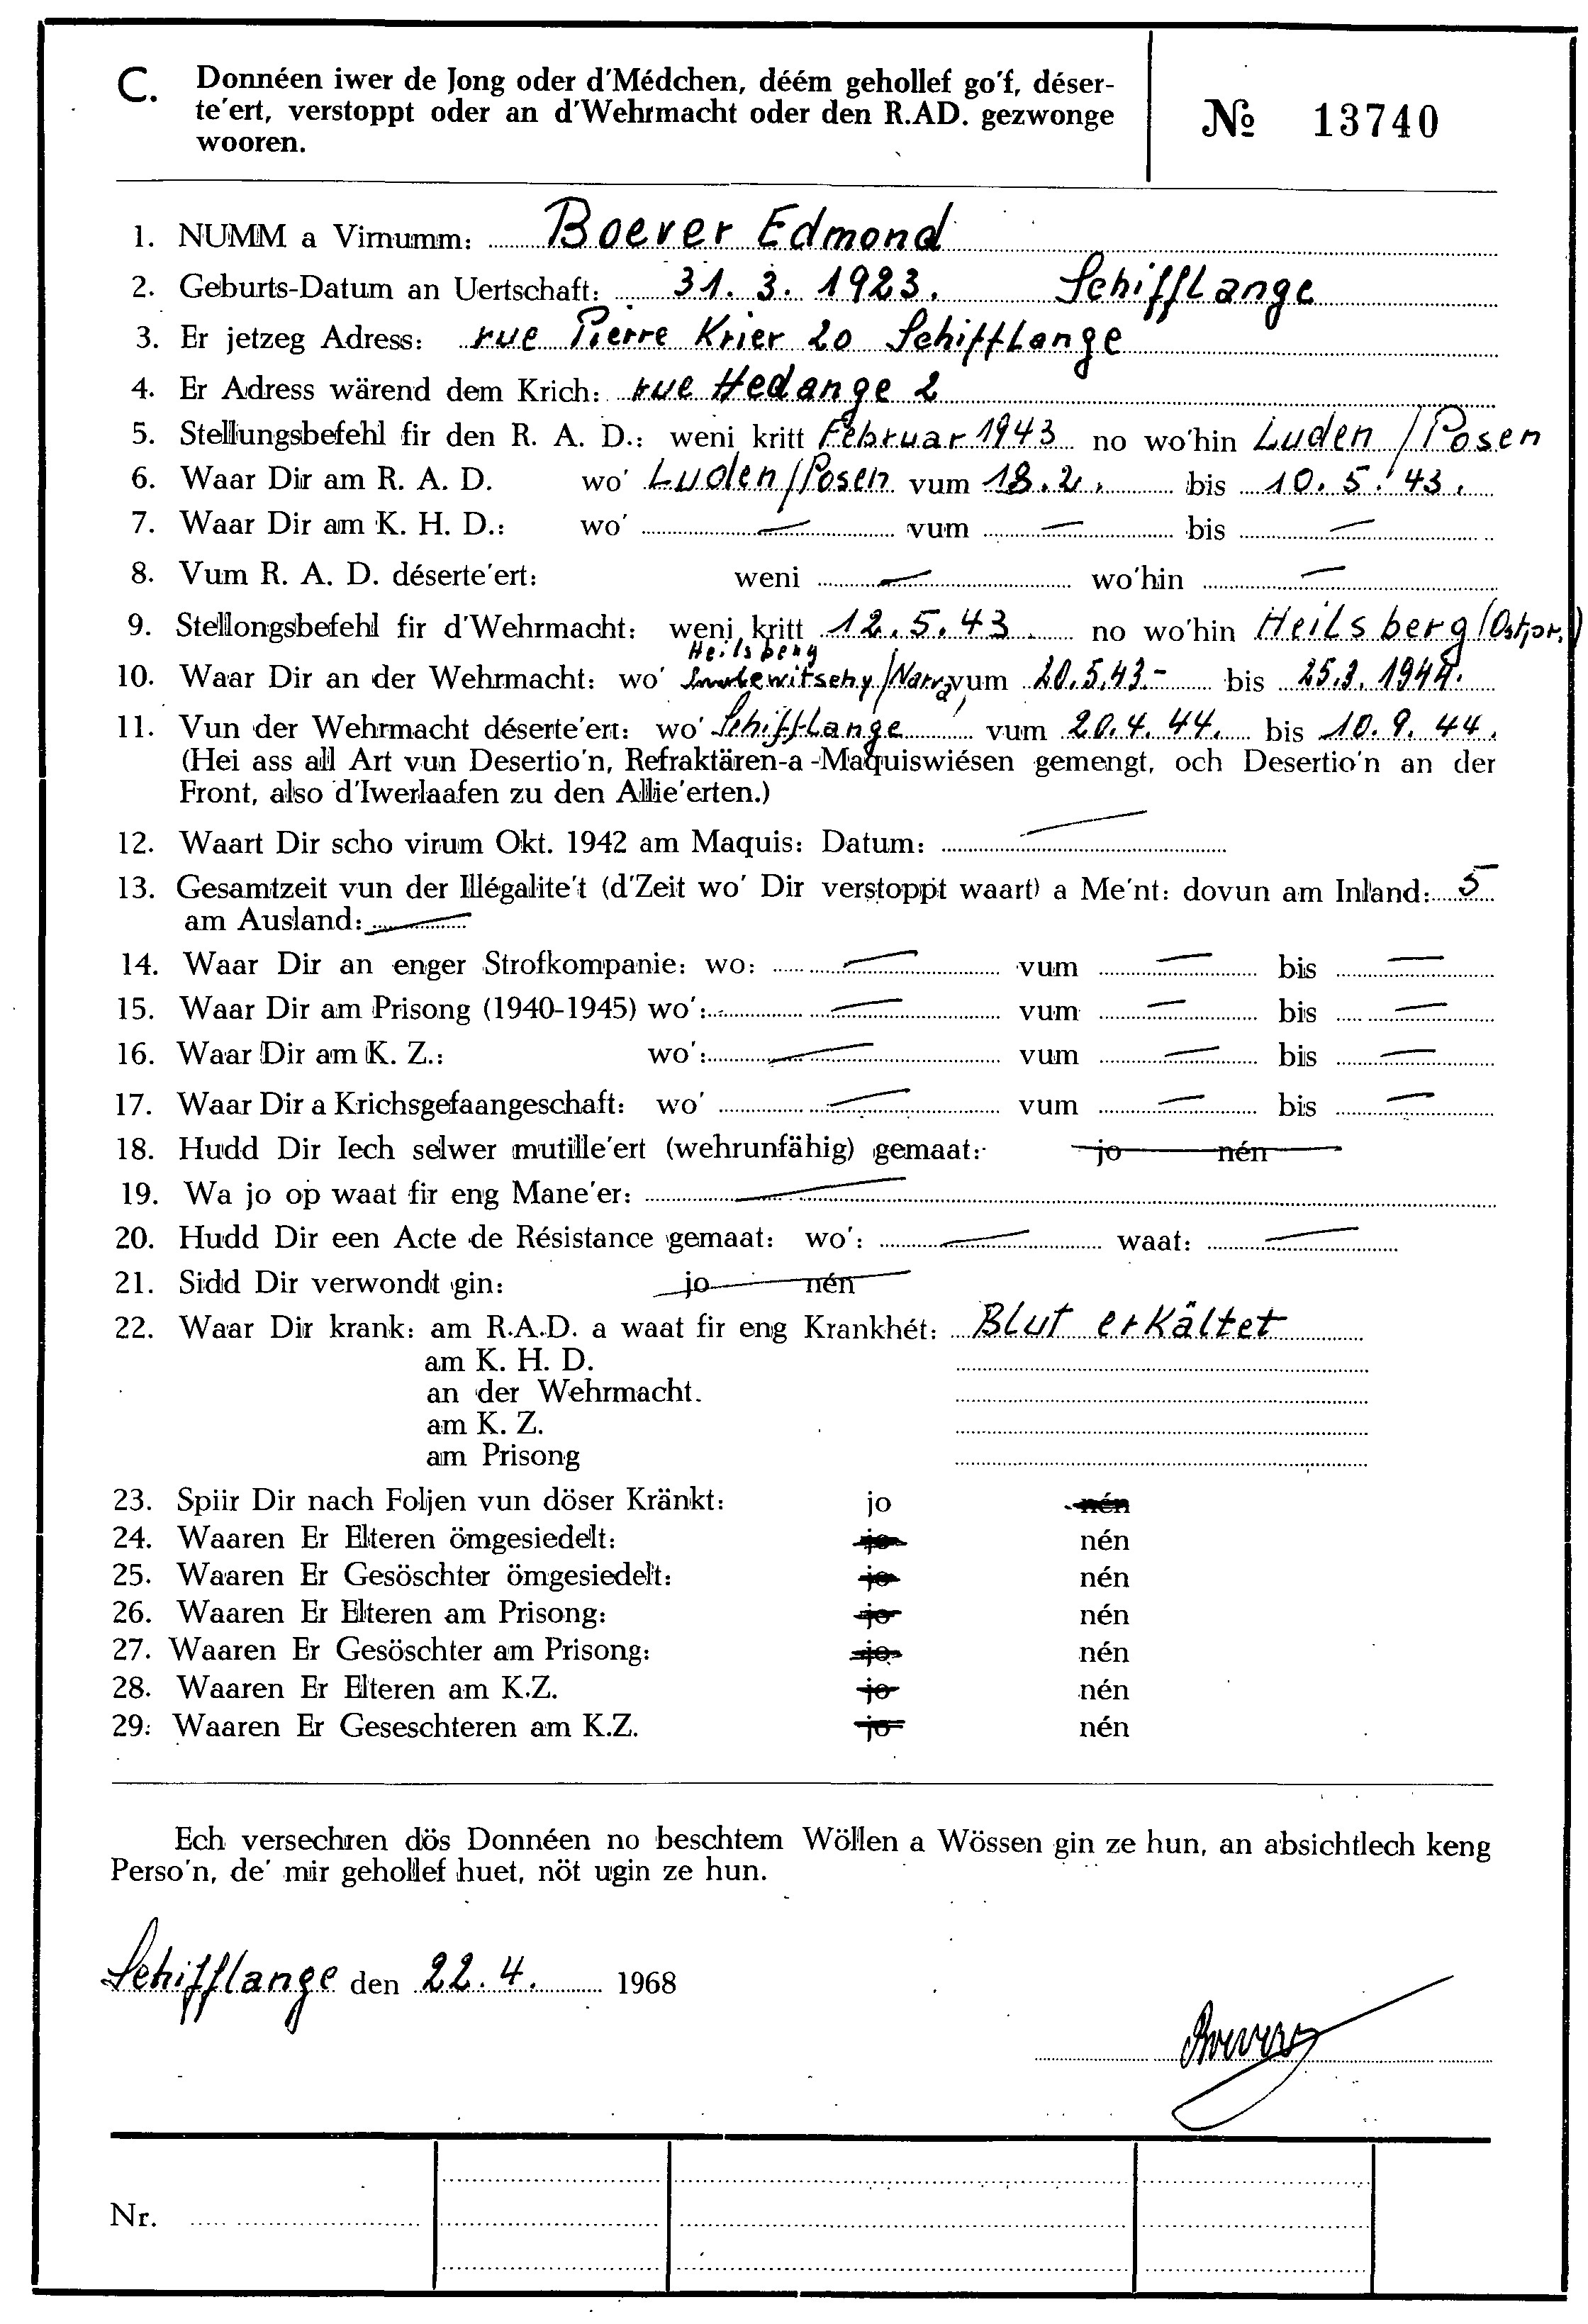 C. Donnéen iwer de Jong oder d'Médchen, déém gehollef go'f, déser-
te'ert, verstoppt oder an d'Wehrmacht oder den R.AD. gezwonge
wooren.
№ 13740
1. NUMM a Virnumm: Boever Edmond
2. Geburts-Datum an Uertschaft: 31. 3. 1923. Schifflange
3. Er jetzeg Adress: rue Pierre Krier 20 Schifflange
4. Er Adress wärend dem Krich: rue Hedange 2
5. Stellungsbefehl fir den R. A. D.: weni kritt Februar 1943 no wo'hin Luden / Posen
6. Waar Dir am R. A. D. wo' Luden/Posen vum 18.2. bis 10. 5. 43.
7. Waar Dir am K. H. D.: wo' — vum — bis —
8. Vum R. A. D. déserte'ert: weni — wo'hin —
9. Stellongsbefehl fir d'Wehrmacht: weni kritt 12. 5. 43. no wo'hin Heilsberg (Ostpr.)
Heilsberg
10. Waar Dir an der Wehrmacht: wo' vum 20.5.43.- bis 25.3. 1944.
11. Vun der Wehrmacht déserte'ert: wo' Schifflange vum 20.4. 44. bis 10. 9. 44.
(Hei ass all Art vun Desertio'n, Refraktären-a -Maquiswiésen gemengt, och Desertio'n an der
Front, also d'Iwerlaafen zu den Allie'erten.)
12. Waart Dir scho virum Okt. 1942 am Maquis: Datum: —
13. Gesamtzeit vun der Illégalite't (d'Zeit wo' Dir verstoppt waart) a Me'nt: dovun am Inland: 5
am Ausland: —
14. Waar Dir an enger Strofkompanie: wo: — vum — bis —
15. Waar Dir am Prisong (1940-1945) wo': — vum — bis —
16. Waar Dir am K. Z.: wo': — vum — bis —
17. Waar Dir a Krichsgefaangeschaft: wo' — vum — bis —
18. Hudd Dir Iech selwer mutille'ert (wehrunfähig) gemaat: jo nén
19. Wa jo op waat fir eng Mane'er: —
20. Hudd Dir een Acte de Résistance gemaat: wo': — waat: —
21. Sidd Dir verwondt gin: jo nén
22. Waar Dir krank: am R.A.D. a waat fir eng Krankhét: Blut erkältet
am K. H. D.
an der Wehrmacht.
am K. Z.
am Prisong
23. Spiir Dir nach Foljen vun döser Kränkt: jo nén
24. Waaren Er Elteren ömgesiedelt: jo nén
25. Waaren Er Gesöschter ömgesiedelt: jo nén
26. Waaren Er Elteren am Prisong: jo nén
27. Waaren Er Gesöschter am Prisong: jo nén
28. Waaren Er Elteren am K.Z. jo nén
29. Waaren Er Geseschteren am K.Z. jo nén
Ech versechren dös Donnéen no beschtem Wöllen a Wössen gin ze hun, an absichtlech keng
Perso'n, de' mir gehollef huet, nöt ugin ze hun.
Schifflange den 22. 4. 1968
Nr.